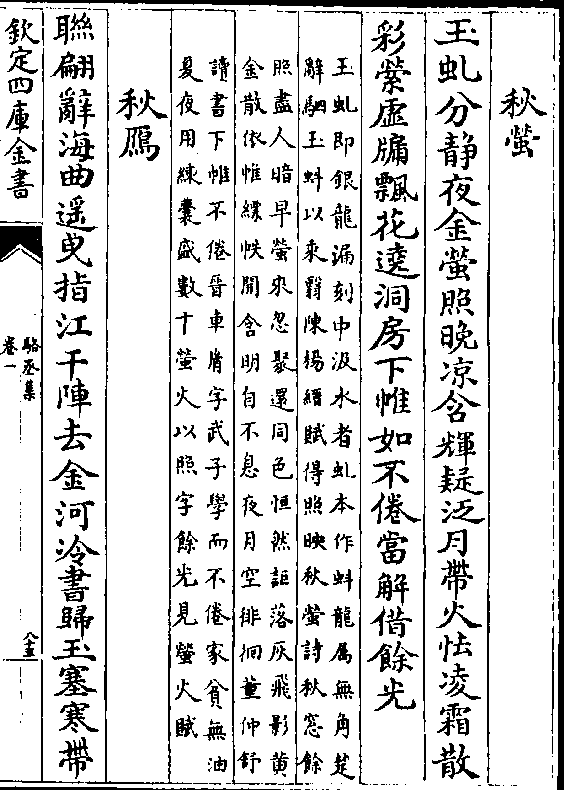 秋螢
玉虬分静夜金螢照晩凉含輝疑泛月帶火怯凌霜散
彩縈虛牖飄花遶洞房下帷如不倦當解借餘光
玉虬即銀龍漏刻中汲水者虬本作蚪龍属無角楚
辭駟玉蚪以来翳陳楊縉賦得照映秋螢詩秋窓餘
照盡人暗早螢來忽聚還同色恒然詎落灰飛影黄
金散依帷縹帙開含明自不息夜月空徘徊董仲舒
讀書下帷不倦晉車胤字武子學而不倦家貧無油
夏夜用練囊盛數十螢火以照字餘光見螢火賦
秋鴈
聯翩辭海曲遥曳指江干陣去金河冷書歸玉塞寒帶
欽定四庫全書
駱丞集
卷一
八五